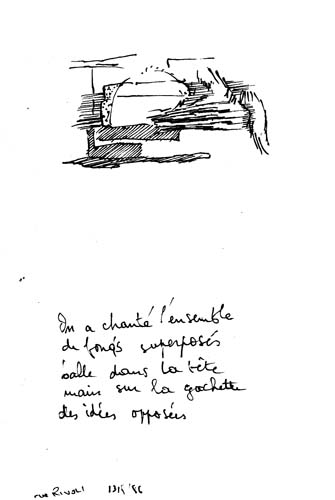 On a chanté l'ensemble
de fonds superposés
balle dans la tête
main sur la gachette
des idées opposées
rue Rivoli '86